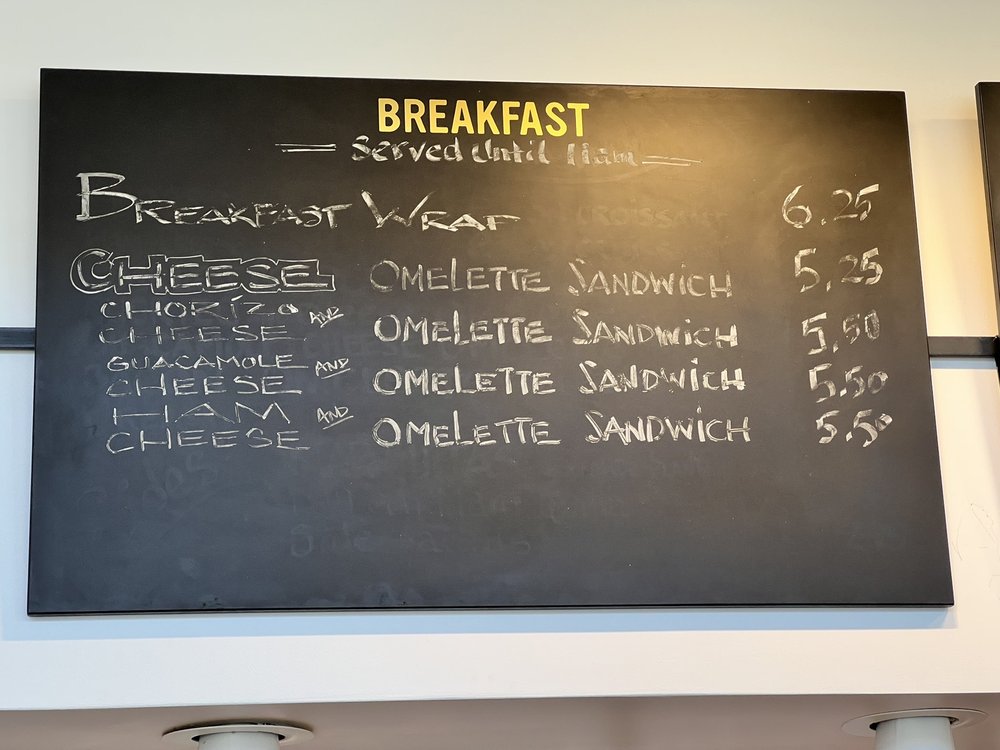 BREAKFAST
Served Until 11am
BREAKFAST WRAP 6.25
CHEESE OMELETTE SANDWICH 5.25
CHORIZO AND
CHEESE OMELETTE SANDWICH 5.50
GUACAMOLE AND
CHEESE OMELETTE SANDWICH 5.50
HAM AND
CHEESE OMELETTE SANDWICH 5.50